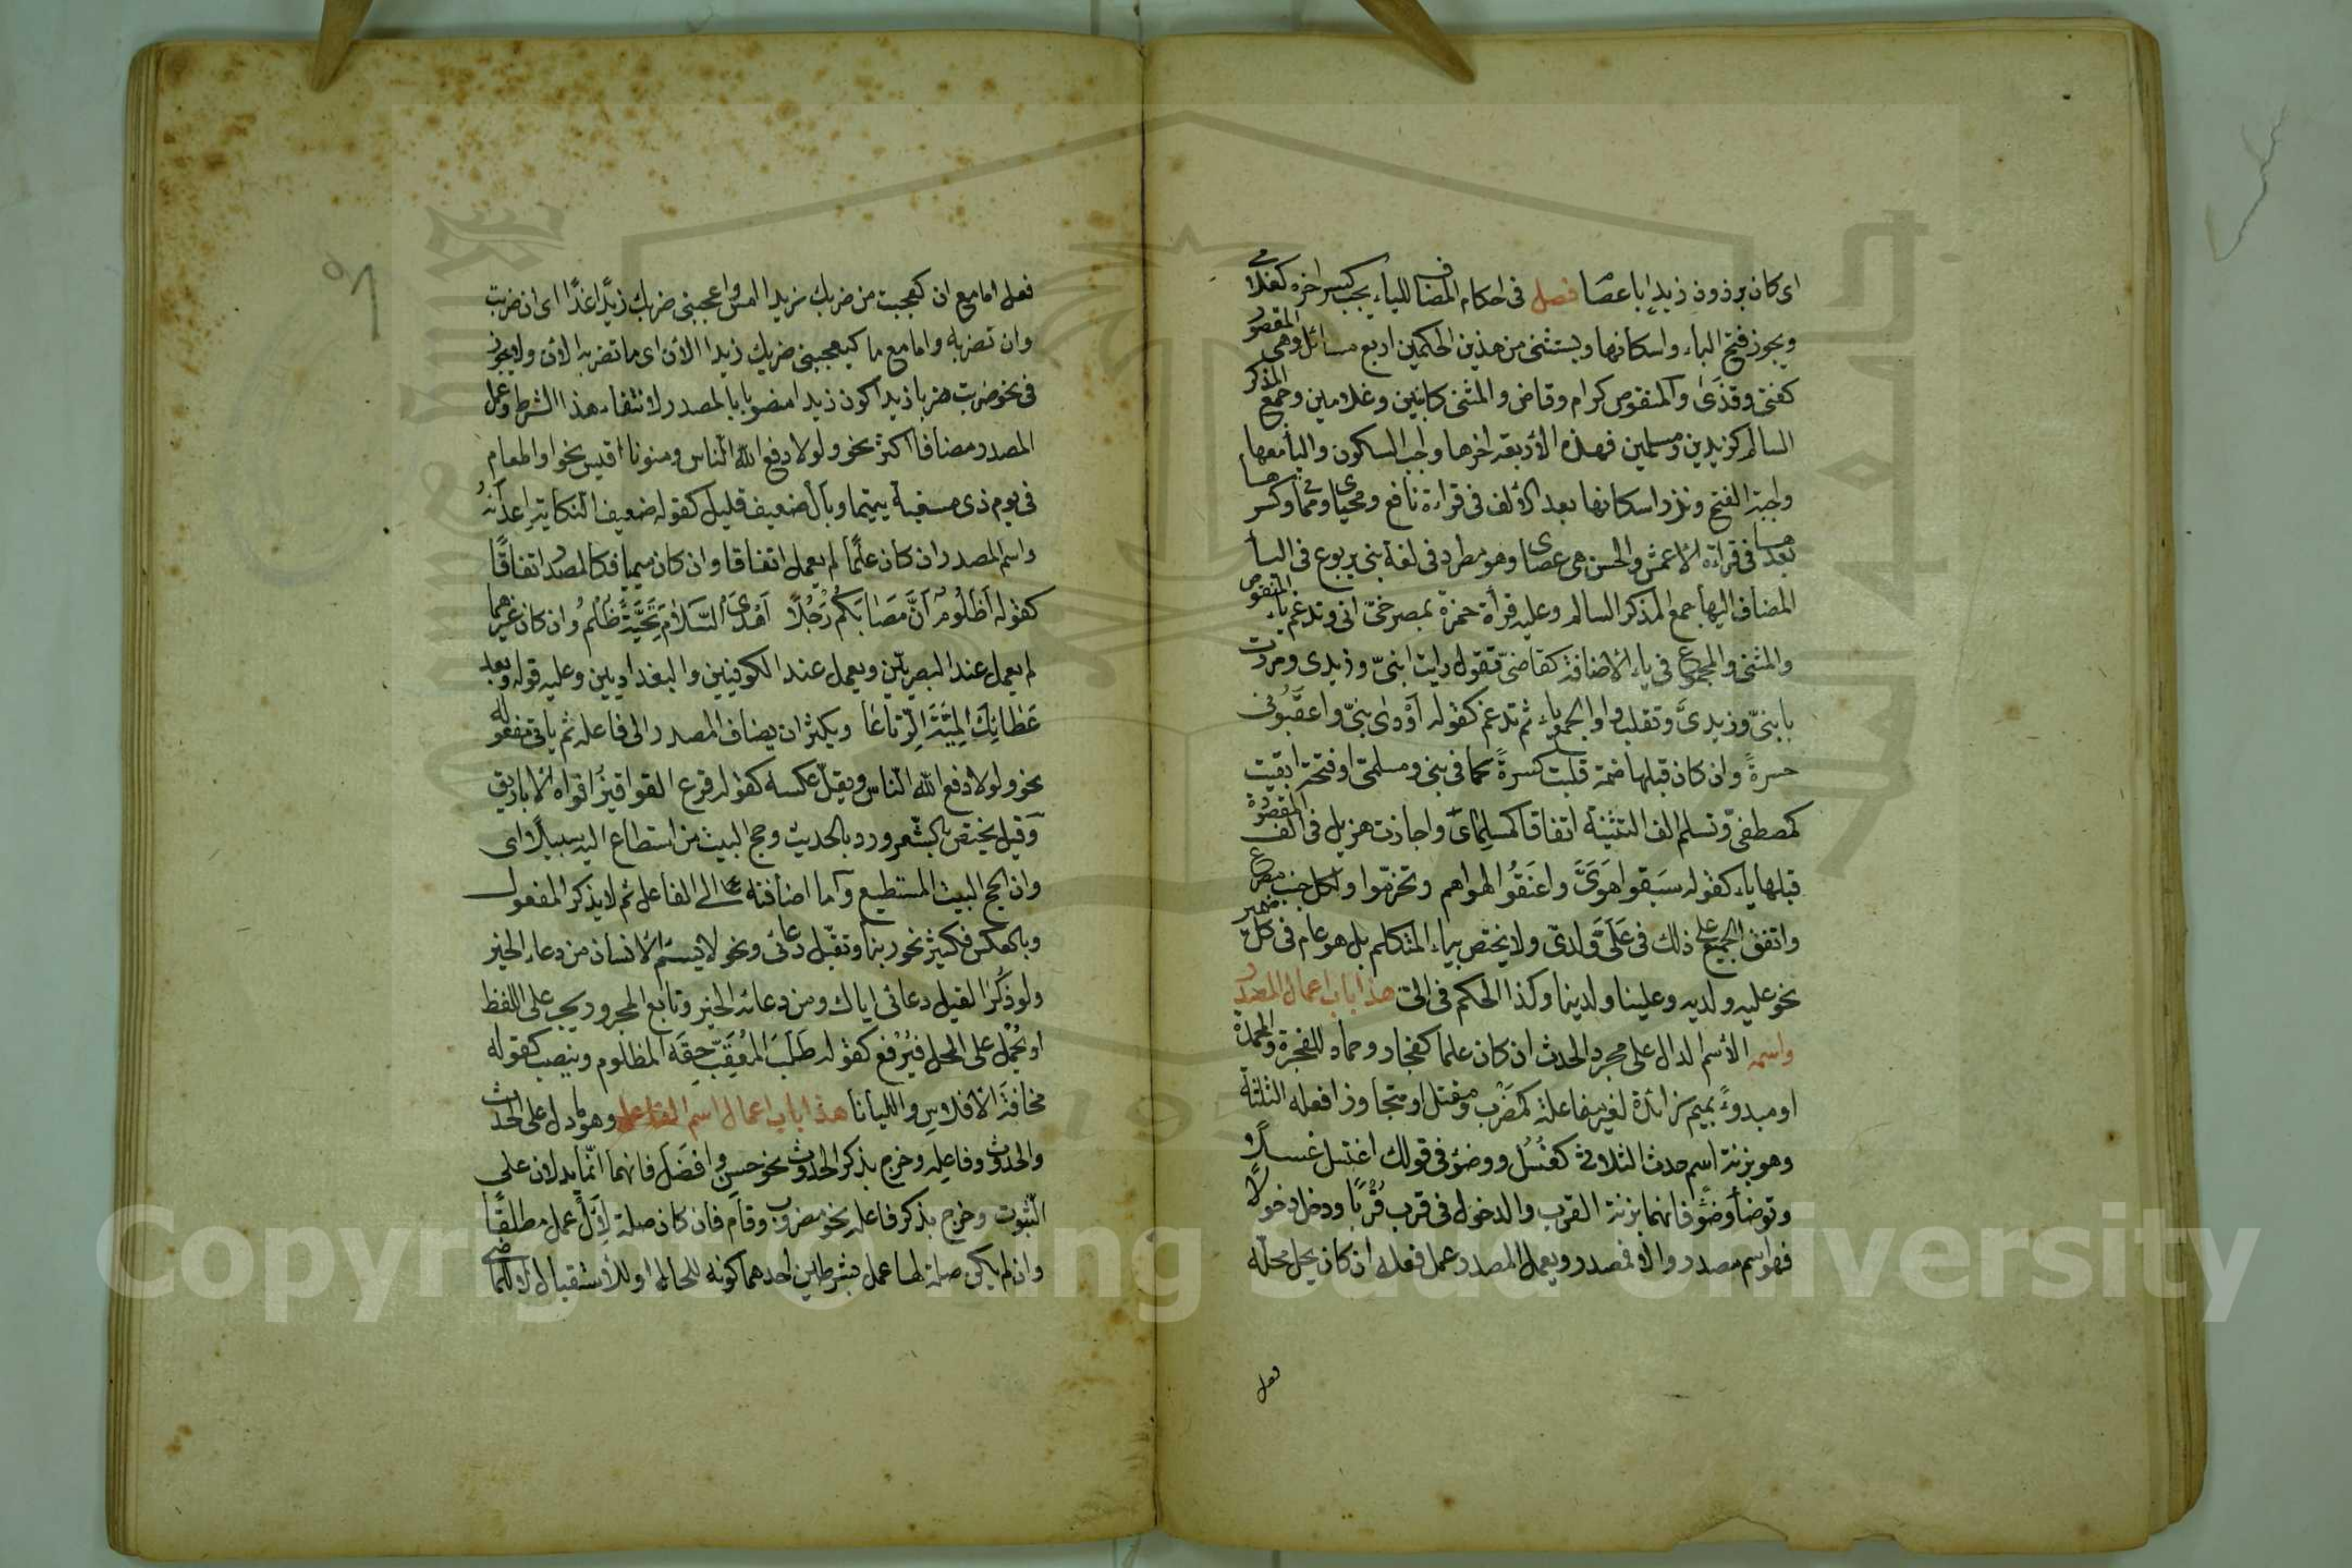 اى كان برذون زيد ابا عصا فصل فى احكام المضاف للياء يجب كسر اخره كغلامى
ويجوز فتح الياء واسكانها ويستثنى من هذين الحكمين اربع مسائل وهى المقصور
كفتى وقذى والمنقوص كرام وقاض والمثنى كابنين وغلامين وجمع المذكر
السالم كزيدين ومسلمين فهذه الأربعة اخرها واجب السكون والياء معها
واجبة الفتح وندر اسكانها بعد الألف فى قراءة نافع ومحياى ومماتى وكسرها
بعدها فى قراءة الأعمش والحسن هى عصاى وهو مطرد فى لغة بنى يربوع فى الياء
المضاف اليها جمع المذكر السالم وعليه قراءة حمزة بمصرخى انى وتدغم ياء المنقوص
والمثنى والمجموع فى ياء الأضافة كقاضىّ فتقول رايت ابنىّ وزيدى ومررت
بابنىّ وزيدىّ وتقلب واو الجمع ياء ثم تدغم كقوله أودى بنىّ واعقبونى
حسرةً وان كان قبلها ضمة قلبت كسرةً كما فى بنى ومسلمى او فتحة ابقيت
كمصطفىّ وتسلم الف التثنية اتفاقا كمسلماىَ واجازت هزيل فى الف المقصورة
قبلها ياء كقوله سَبَقوا هَوَىَّ واعنَقُوا لهواهم وتخرّموا ولكل جنب مصرع
واتفق الجميع على ذلك فى عَلَىَّ ولدىّ ولا يختص بياء المتكلم بل هو عام فى كل ضمير
نحو عليه ولديه وعلينا ولدينا وكذا الحكم فى الىّ هذا باب اعمال المصدر
واسمه الأسم الدال على مجرد الحدث ان كان علما كفجار وحماد للفجرة والمحمدة
او مبدوءً بميم زائدة لغير مفاعلة كمَضْرَب ومقتل او متجاوز افعله الثلثة
وهو بزنة اسم حدث الثلاثى كغُسْل ووضؤ فى قولك اغتسل غسلًا و
وتوضأ وضؤ فانهما بزنة القرب والدخول فى قرب قُرْبًا ودخل دخولًا
فهو اسم مصدر والا فمصدر ويعمل المصدر عمل فعله ان كان يحل محله
فعل
فعل اما مع ان كعجبت من ضربك زيدا امس واعجبنى ضربك زيدًا غدًا اى ان ضربت
وان تضربه واما مع ما كيعجبنى ضربك زيدا الآن اى ما تضربه الآن ولا يجوز
فى نحو ضربت ضربا زيدا كون زيدا منصوبا بالمصدر لانتفاء هذا الشرط وعمل
المصدر مضافا اكثر نحو ولولا دفع الله الناس ومنونا اقيس نحو او اطعام
فى يوم ذى مسغبة يتيما وبأل ضعيف قليل كقوله ضعيف النكاية اعدآئه
واسم المصدر ان كان علمًا لم يعمل اتفاقا وان كان ميميا فكالمصدر اتفاقًا
كقوله أظَلومُ أنَّ مَصَابَكُم رَجُلًا أهْدَى السَّلامَ تَحيَّةً ظُلمُ وان كان غيرهما
لم يعمل عند البصريّين ويعمل عند الكوفيين والبغداديين وعليه قوله وبعد
عَطائِكَ المِئَةَ الرِّتَاعَا ويكثر ان يضاف المصدر الى فاعله ثم ياتى مفعوله
نحو ولولا دفع الله الناس ويقلّ عكسه كقوله قرع القواقيزُ افواه الأباريق
وقيل يختص بالشعر ورد بالحديث وحج البيت من استطاع اليه سبيلًا اى
وان يحج البيت المستطيع وأما اضافته الى الفاعل ثم لا يذكر المفعول
وبالعكس فكثير نحو ربنا وتقبّل دعائى ونحو لا يسئم الأنسان من دعاء الخير
ولو ذكر القيل دعائى اياك ومن دعائه الخير وتابع المجرور يجر على اللفظ
او يُحْمَل على المحل فيُرفع كقوله طَلَبَ المُعَقِّبِ حقَه المظلوم وينصب كقوله
مخافةَ الأفلاسِ والليانا هذا باب اعمال اسم الفاعل وهو ما دل على الحدث
والحدوث وفاعله وخرج بذكر الحدوث نحو حسن وافضَل فانهما انّما يدلان على
الثبوت وخرج بذكر فاعله نحو مضروب وقام فان كان صلة لِأَلْ عمل مطلقًا
وان لم يكن صلة لها عمل بشرطين احدهما كونه للحال او للأستقبال لا للماضى